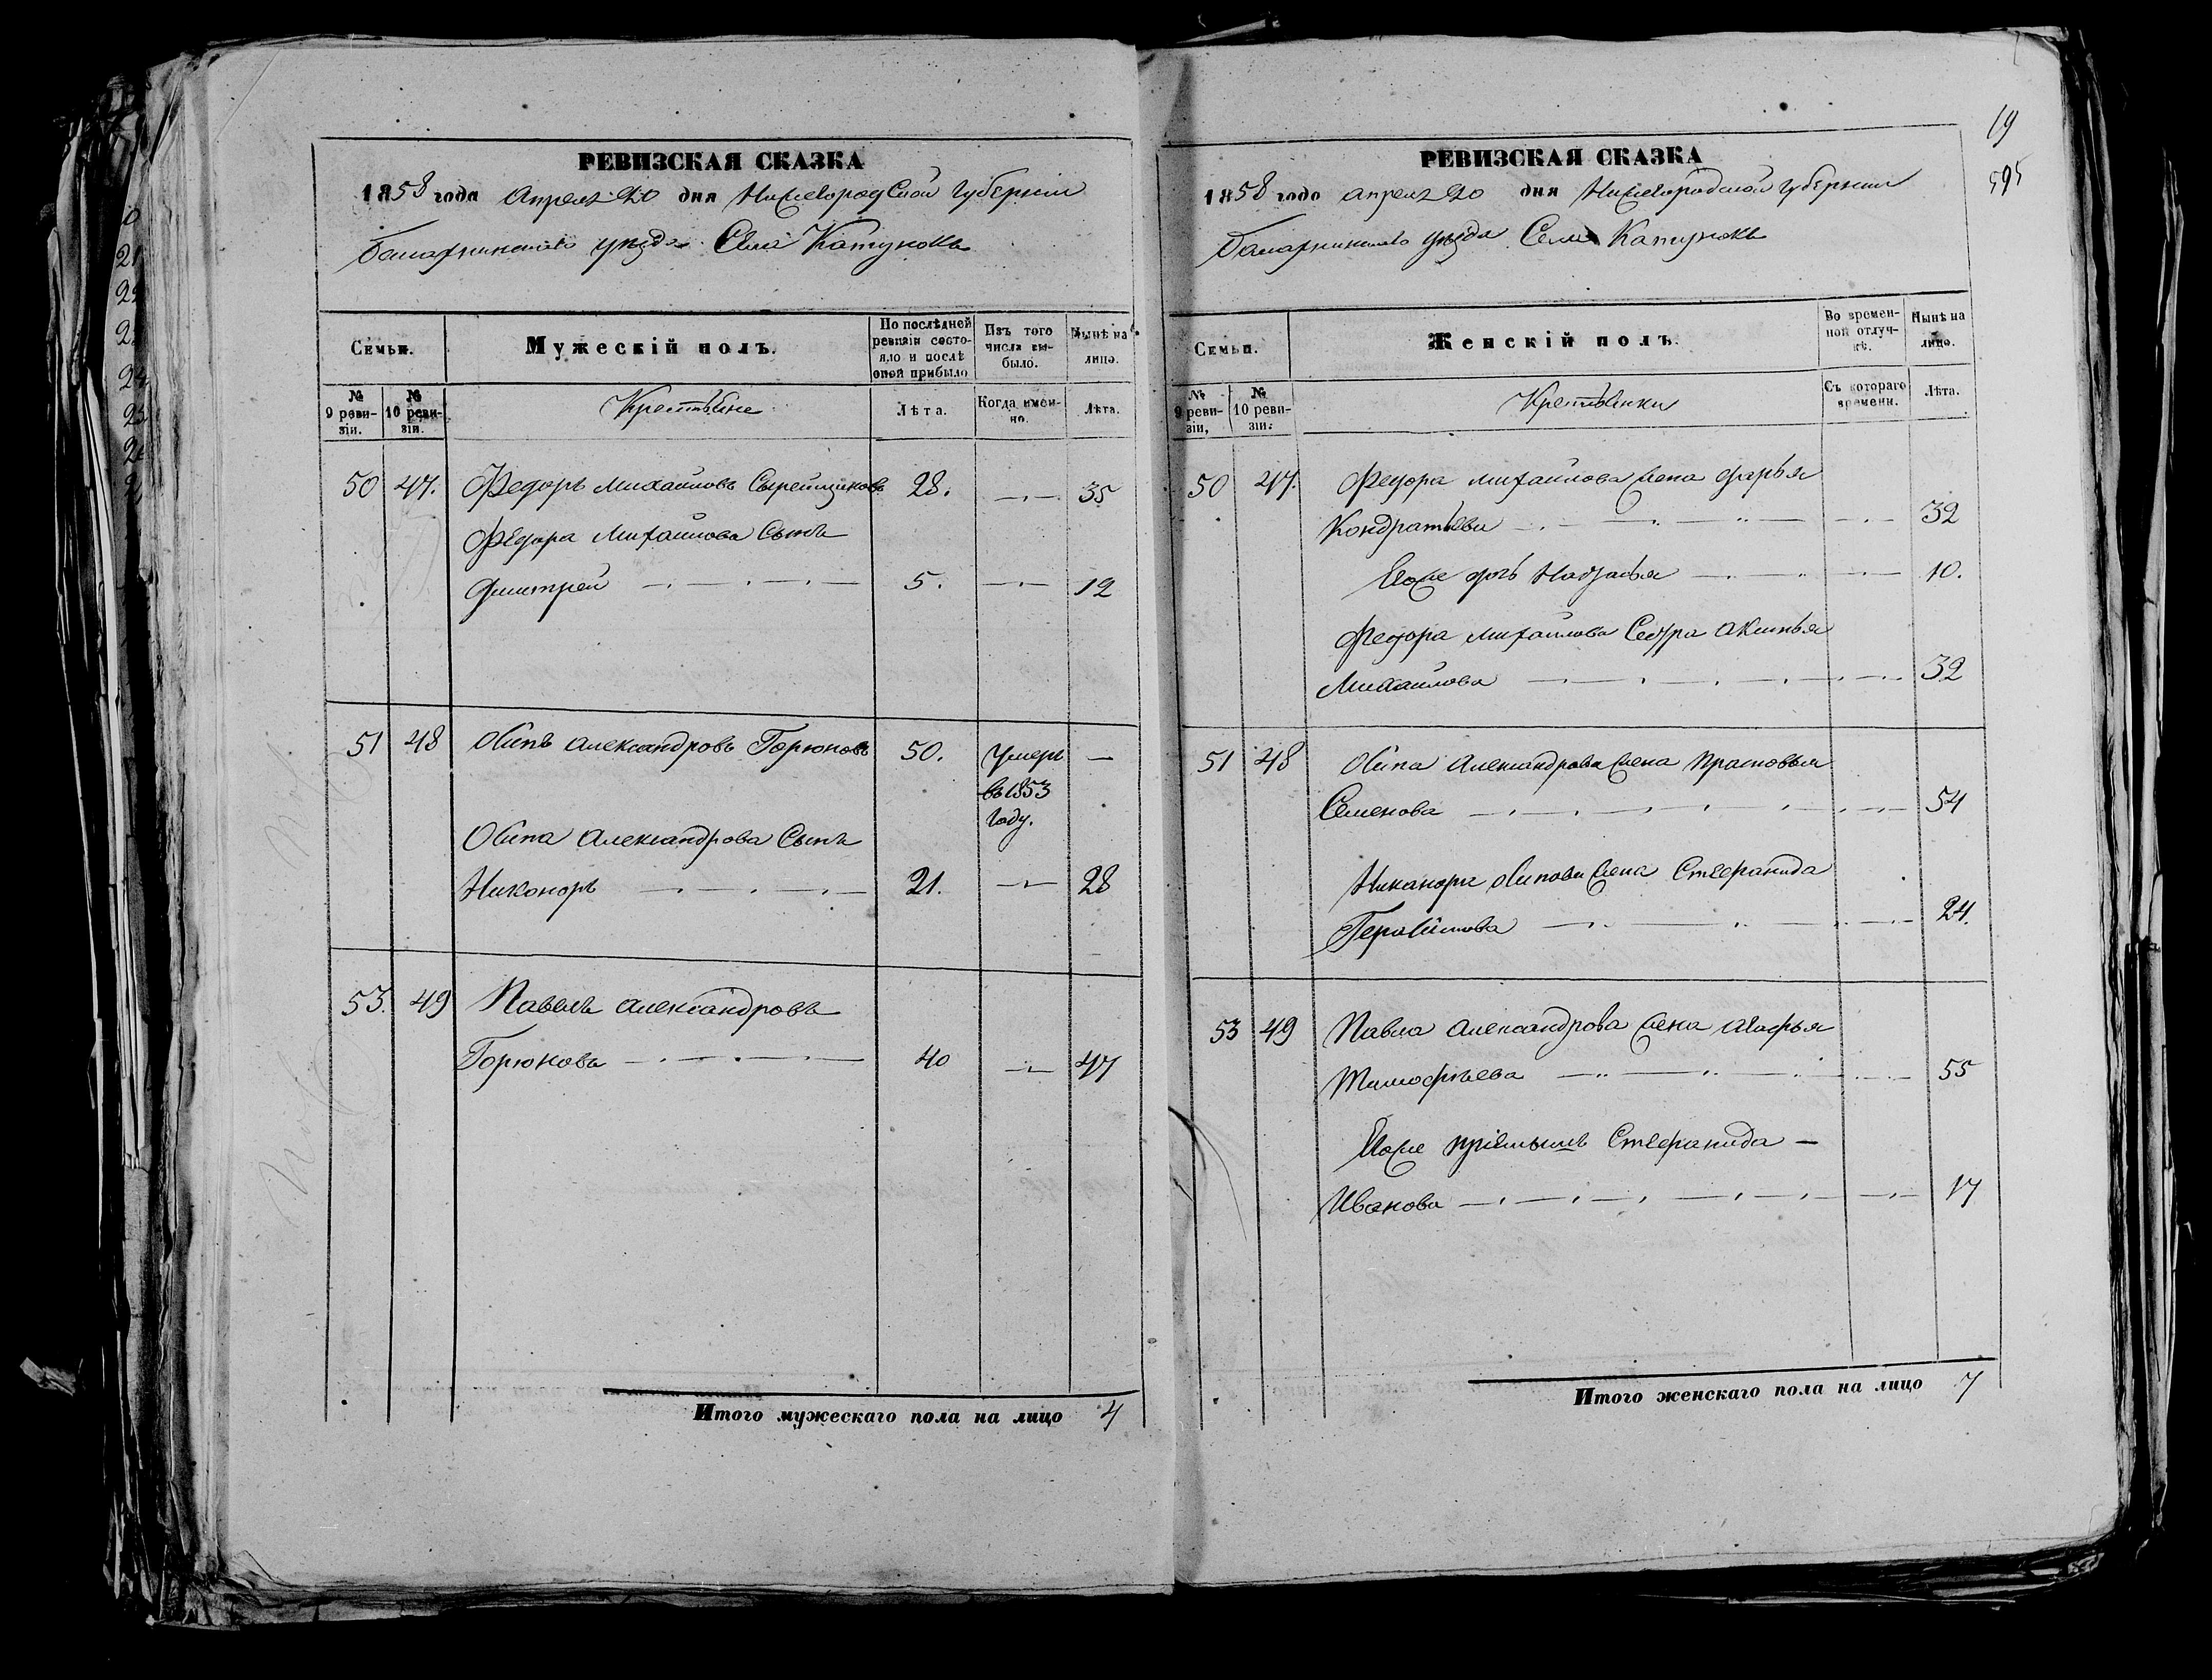 РЕВИЗСКАЯ СКАЗКА
1858 года Апреля 20 дня Нижегородской губернии
Балахнинскаго уезда Села Катунокъ
Семьи.
Мужескій полъ.
По послѣдней ревизіи состояло и послѣ оной прибыло
Изъ того числа выбыло.
Нынѣ на лицо.
№ 9 ревизіи.
№ 10 ревизіи.
Крестьяне
Лѣта.
Когда именно.
Лѣта.
50 47. Федоръ Михаиловъ Сырейщиковъ 28. — 35
Федора Михаилова Сынъ
Дмитрей — 5. — 12
51 48 Осипъ Александровъ Горюновъ 50. Умеръ —
въ 1853
Году.
Осипа Александрова Сынъ
Никоноръ — 21. — 28
53. 49 Павелъ Александровъ
Горюновъ — 40 — 47
Итого мужескаго пола на лицо 4
19
595
РЕВИЗСКАЯ СКАЗКА
1858 годо апреля 20 дня Нижегородской губернии
Балахнинскаго уезда Села Катунокъ
Семьи.
Женскій полъ.
Во временной отлучкѣ.
Нынѣ на лицо.
№ 9 ревизіи,
№ 10 ревизіи.
Крестьянки
Съ котораго времени.
Лѣта.
50 47. Федора Михаилова жена Дарья
Кондратьева — 32
Ево же дочь Наталья — 10.
Федора Михаилова Сестра Акинья
Михаилова — 32
51 48 Осипа Александрова жена Прасковья
Семенова — 54
Никанора Осипова жена Стефанида
Герасимова — 24.
53 49 Павла Александрова жена Агафья
Тимофѣева — 55
Ево же пріемышъ Стефанида —
Иванова — 17
Итого женскаго пола на лицо 7